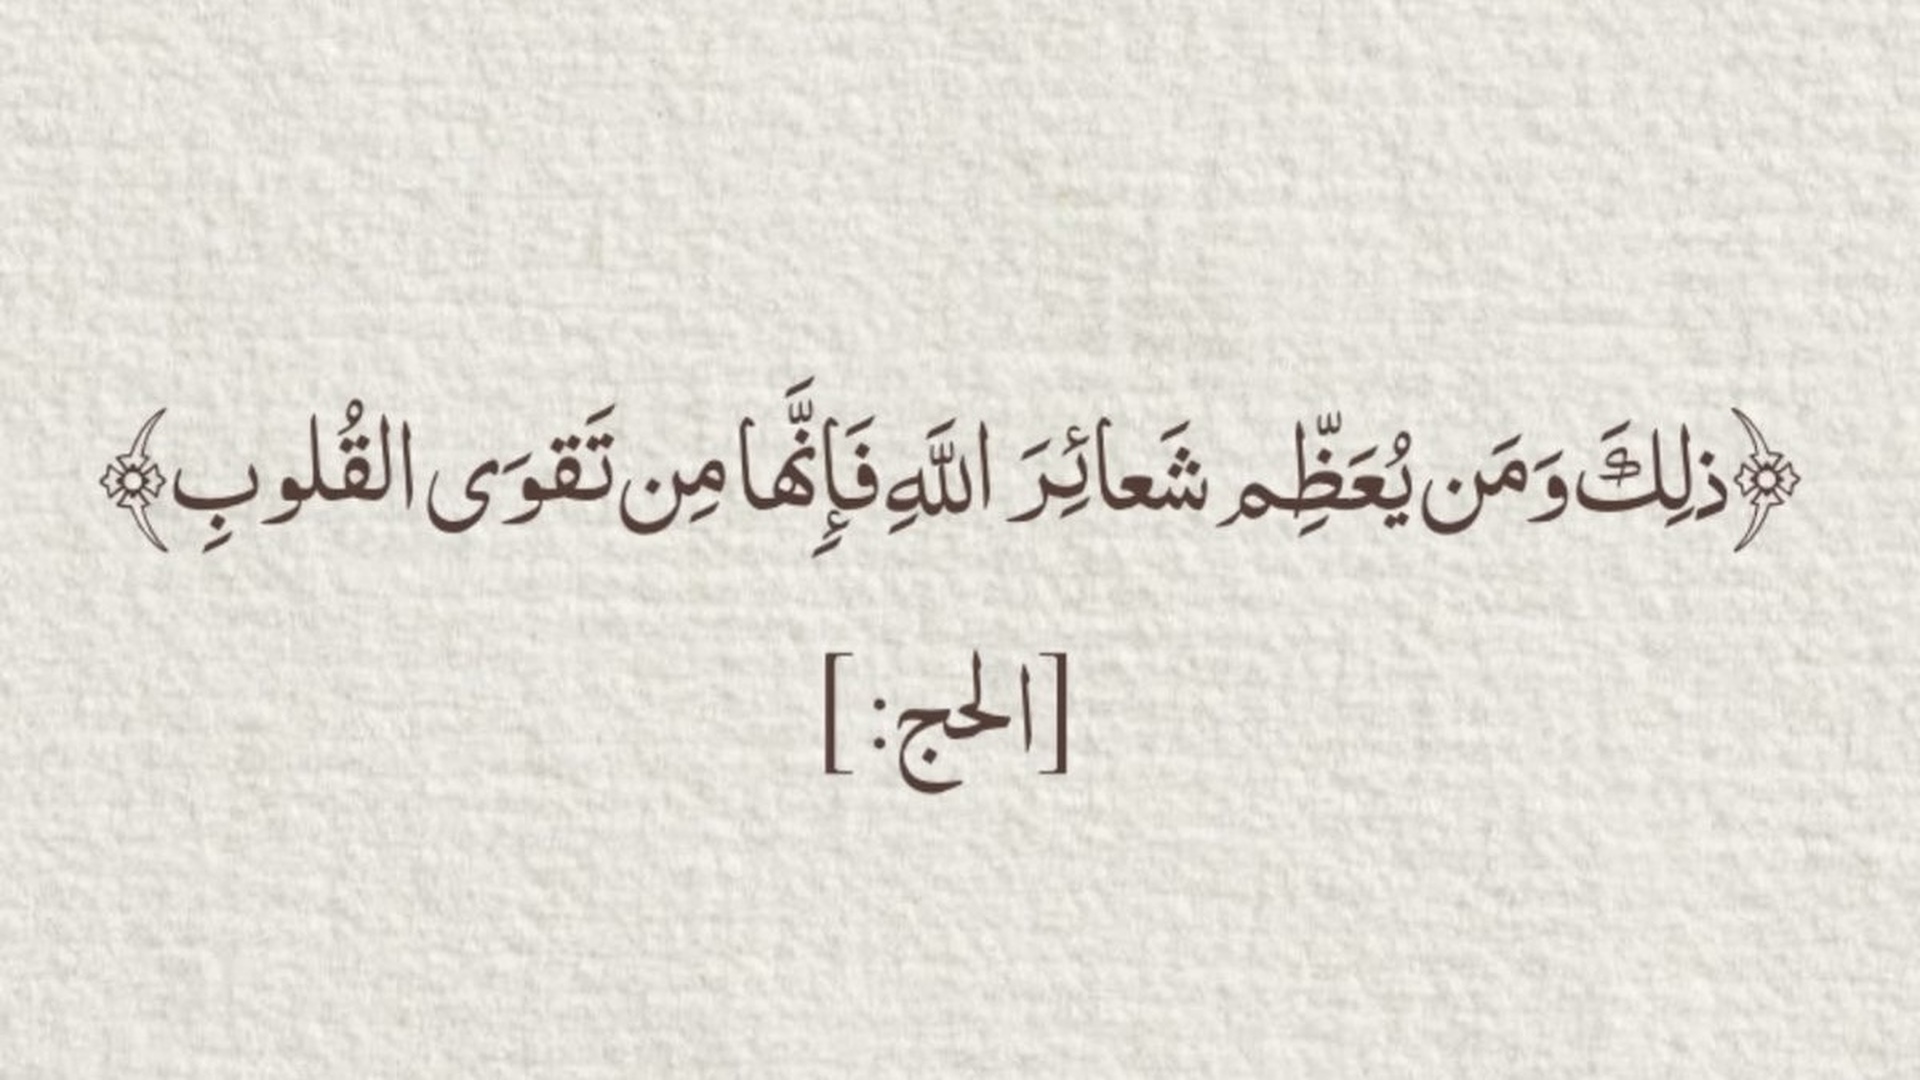 ﴿ذلِكَ وَمَن يُعَظِّم شَعائِرَ اللَّهِ فَإِنَّها مِن تَقوَى القُلوبِ﴾
[الحج: ]